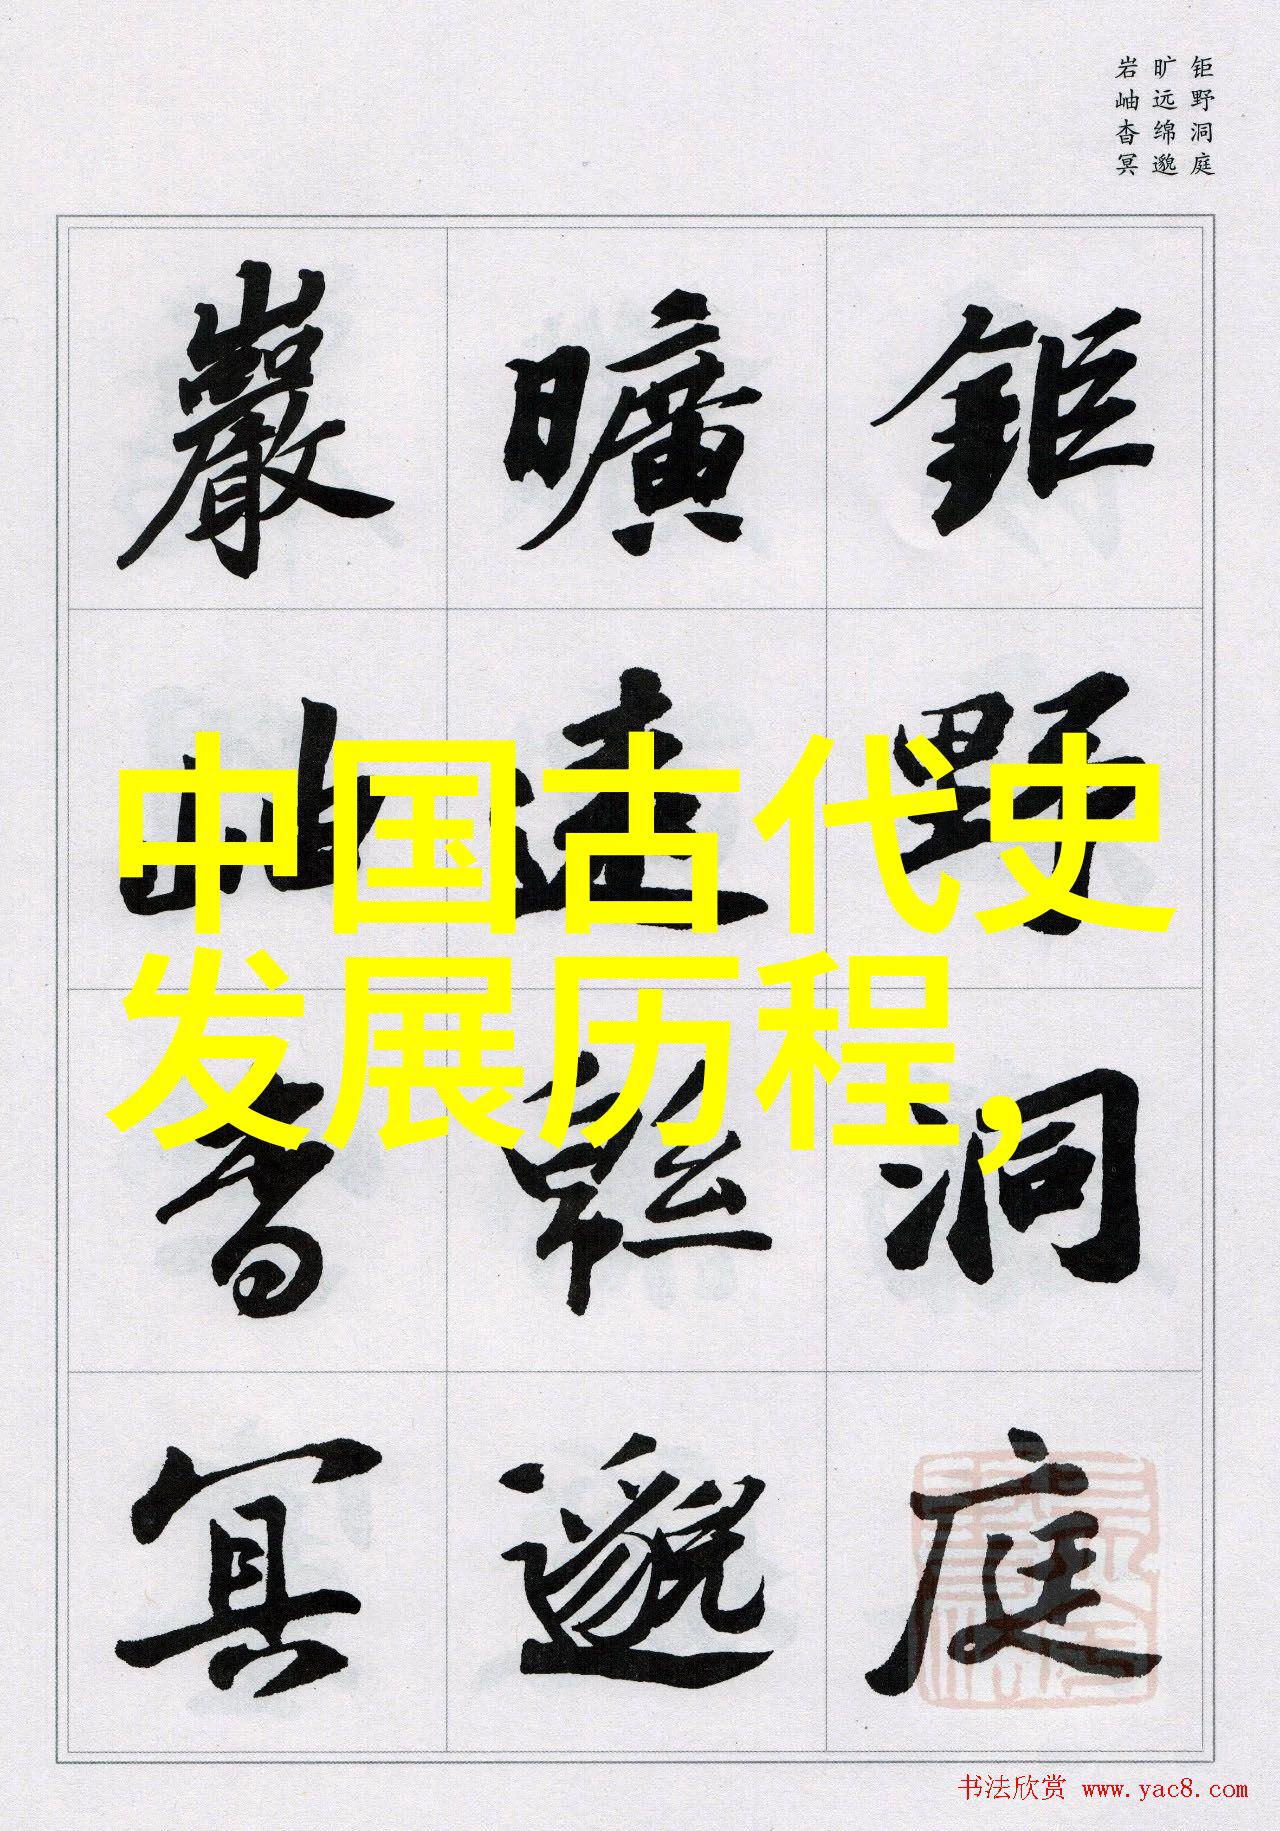 钜野洞庭
旷远绵邈
岩岫杳冥
鉅野洞庭
曠遠緜邈
巖岫杳冥
中国古代史
发展历程，
书法欣赏 www.yac8.com